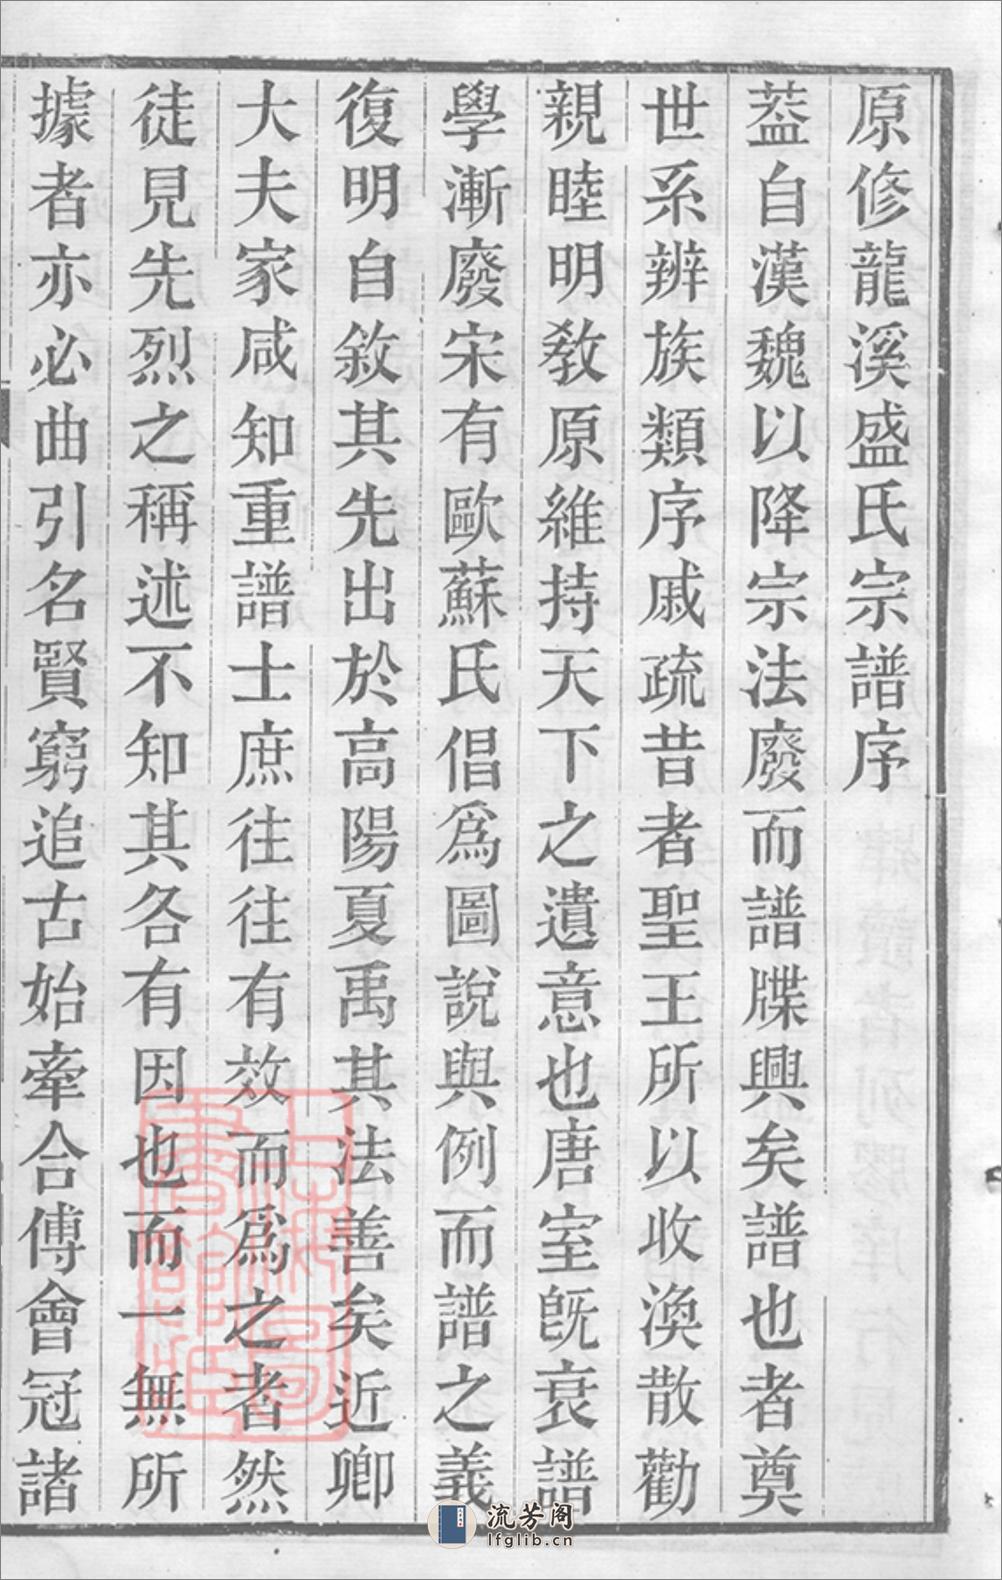 原修龍溪盛氏宗譜序
葢自漢魏以降宗法廢而譜牒興矣譜也者奠
世系辨族類序戚疏昔者聖王所以收渙散勸
親睦明敎原維持天下之遺意也唐室旣衰譜
學漸廢宋有歐蘇氏倡爲圖說與例而譜之義
復明自敘其先出於高陽夏禹其法善矣近卿
大夫家咸知重譜士庶往往有效而爲之者然
徒見先烈之稱述不知其各有因也而一無所
據者亦必曲引名賢窮追古始牽合傅會冠諸
流芳阁
lfglib.cn